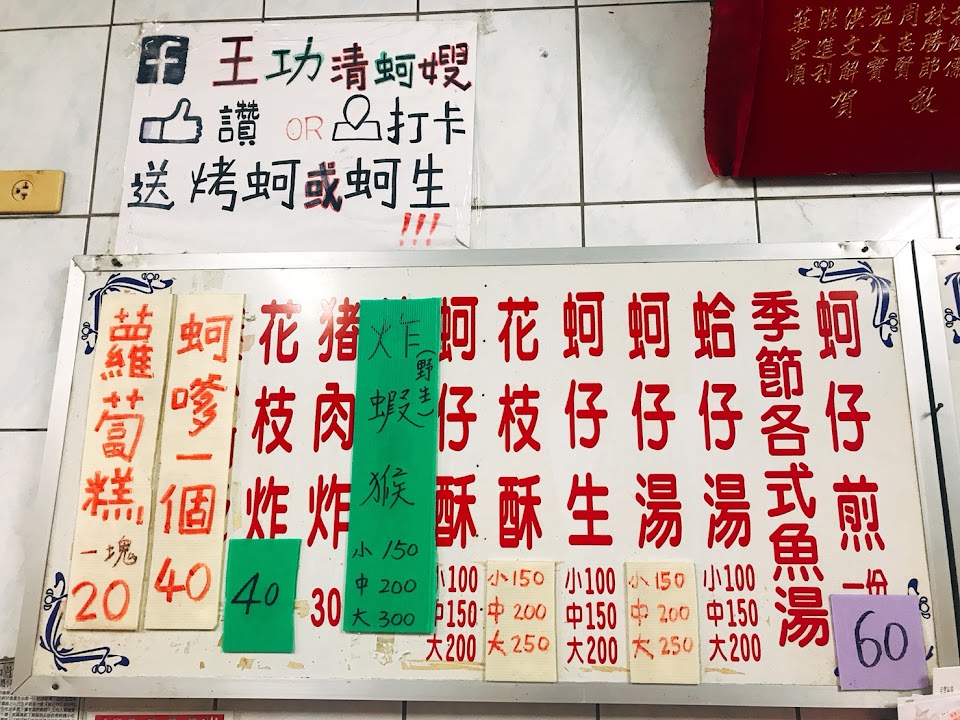 f 王功清蚵嫂
讚 OR 打卡
送烤蚵或蚵生
!!!
林
周志賢
施太寶
洪文解
洪進利
莊宗順
敬
賀
蚵仔煎 一份 60
季節各式魚湯
蛤仔湯 小100 中150 大200
蚵仔湯 小150 中200 大250
蚵仔生 小100 中150 大200
花枝酥 小150 中200 大250
蚵仔酥 小100 中150 大200
炸蝦猴 (野生) 小150 中200 大300
豬肉炸 30
花枝炸 40
蚵嗲一個 40
蘿蔔糕 一塊 20